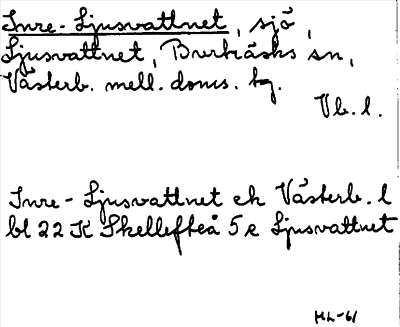 Inre-Ljusvattnet, sjö,
Ljusvattnet, Burträsks sn,
Västerb. mell. doms. tg.
Vb. l.
Inre-Ljusvattnet ek Västerb. l
bl 22 K Skellefteå 5e Ljusvattnet
HL-61